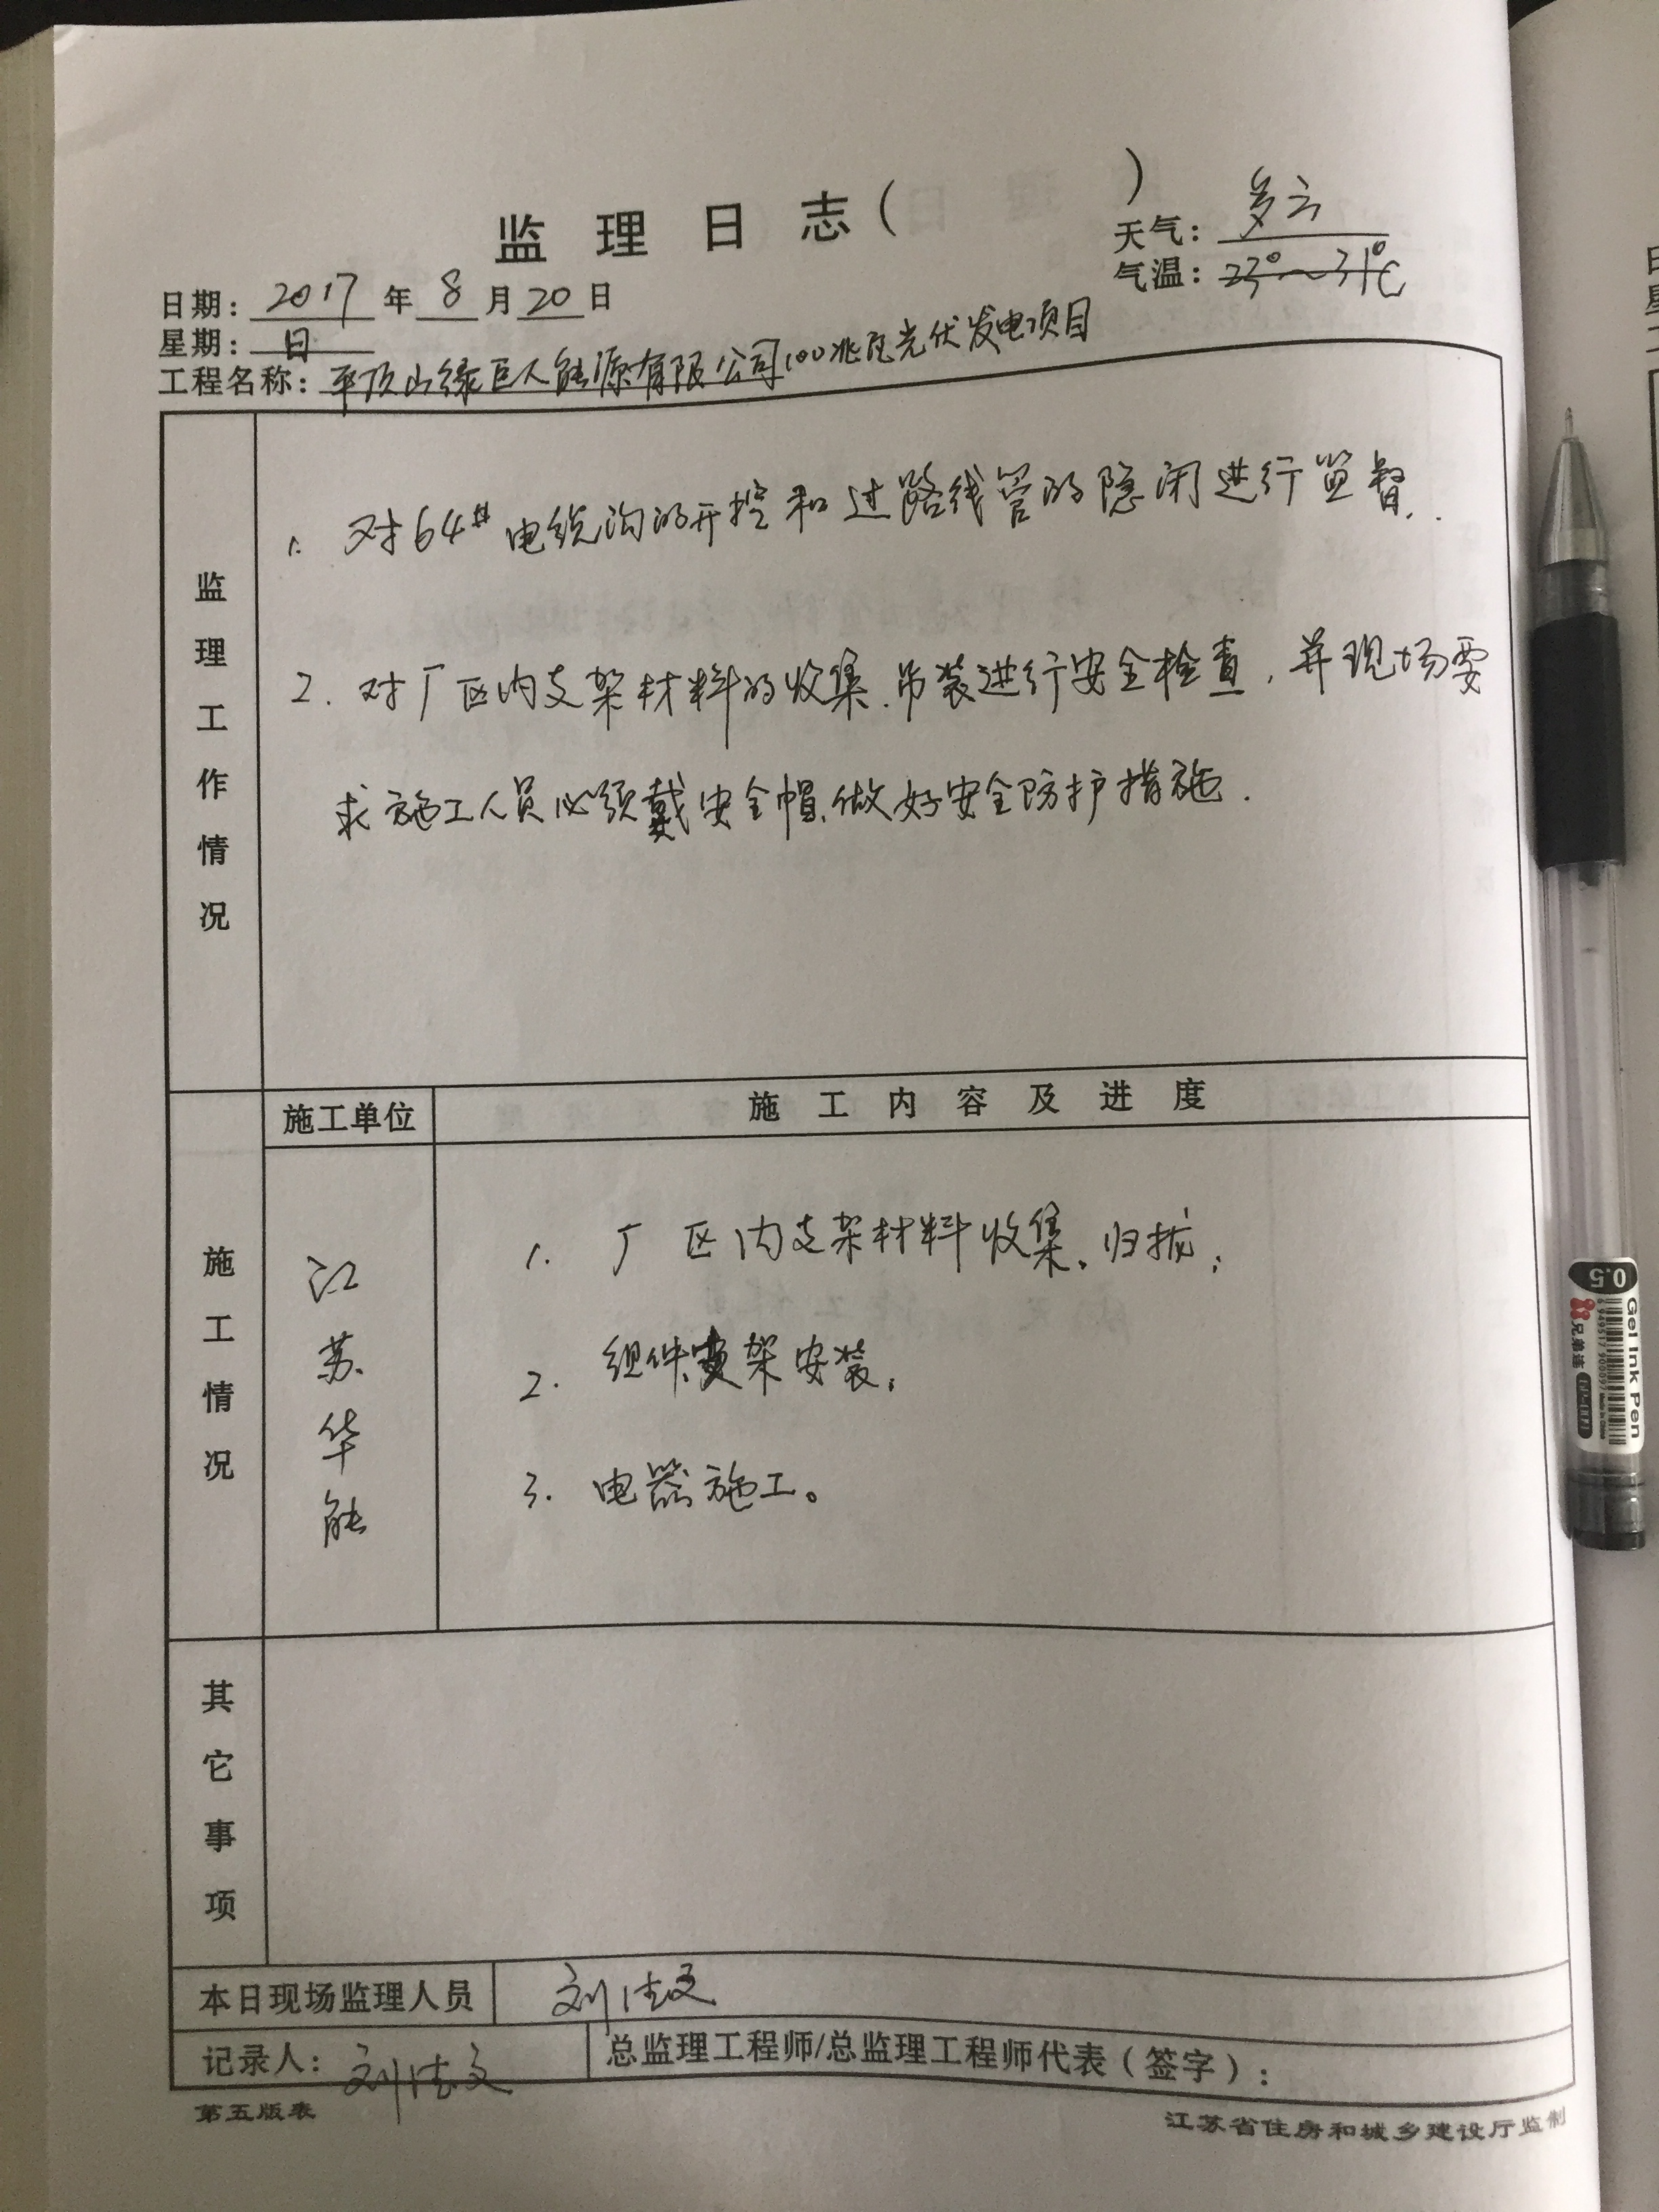 监理日志( )
天气: 多云
气温: 23°~31℃
日期: 2017年8月20日
星期: 日
工程名称: 平顶山绿巨人能源有限公司100兆瓦光伏发电项目
监理工作情况
1. 对64#电缆沟的开挖和过路线管的隐闭进行监督.
2. 对厂区内支架材料的收集.吊装进行安全检查,并现场要
求施工人员必须戴安全帽.做好安全防护措施.
施工单位
施工内容及进度
施工情况
江苏华能
1. 厂区内支架材料收集、归拢;
2. 组件支架安装;
3. 电器施工。
其它事项
本日现场监理人员
刘文
记录人: 刘文
总监理工程师/总监理工程师代表(签字):
第五版表
江苏省住房和城乡建设厅监制
0.5
Gel Ink Pen
兄弟连
6 949517 900097
Made in China